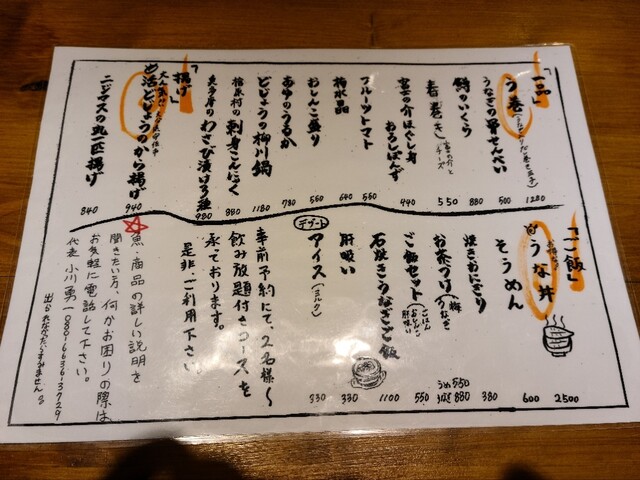 「一品」
う巻(うなぎのだし巻き玉子) 1280
うなぎの骨せんべい 500
鱒のいくら 880
春巻き(富士の介とチーズ) 550
富士の介ほぐし身おろしぽんず 440
フルーツトマト 550
梅水晶 640
おしんこ盛り 550
あゆのうるか 780
どじょうの柳川鍋 1180
檜原村の刺身こんにゃく 880
奥多摩のわさび漬け3種 980
「揚げ」
活どじょうのから揚げ 940
ニジマスの丸一匹揚げ 840
「ご飯」
うな丼 2500
そうめん 600
焼きおにぎり 380
お茶づけ(梅 うなぎ) うめ550 うなぎ880
ご飯セット(ごはん おしんこ 肝吸い) 550
石焼きうなぎご飯 1100
肝吸い 330
デザート
アイス(ミルク) 330
事前予約にて、2名様〜
飲み放題付きコースを
承っております。
是非ご利用下さい。
魚・商品の詳しい説明を
聞きたい方、何かお困りの際は
お気軽に電話して下さい。
代表 小川勇一 080-6636-3729
出られなかったらすみません。